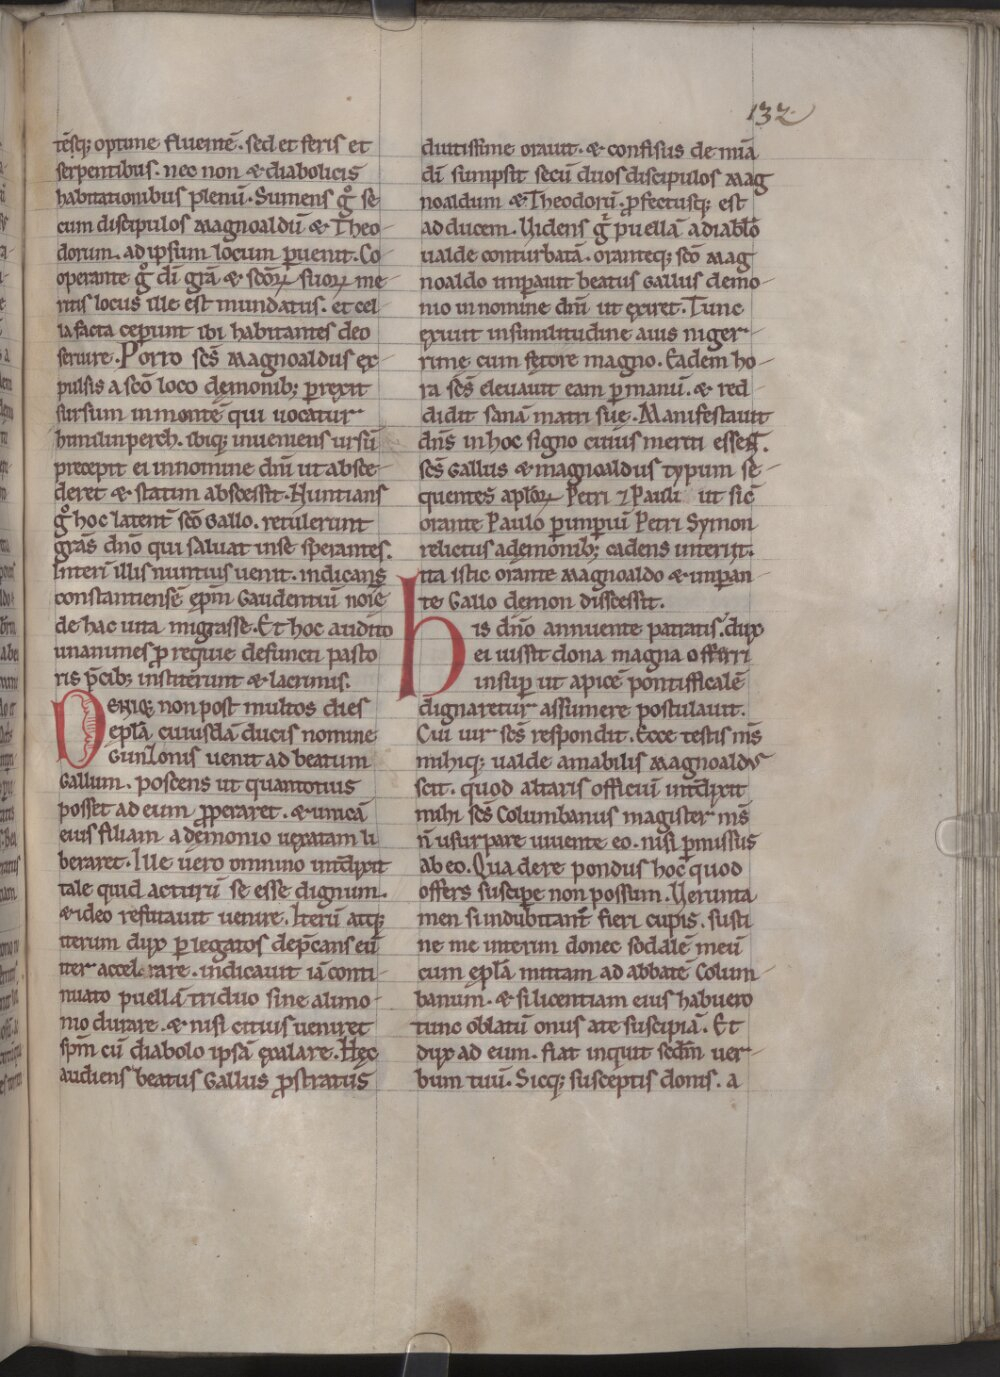 132
tēsq; optime fluentē. sed et feris et
serpentibus. nec non & diabolicis
habitationibus plenū. Sumens gͦ se
cum discipulos magnoaldū & Theo-
dorum. ad ipsum locum puenit. Co-
operante gͦ dī grā & scōꝝ suoꝝ me-
ritis locus ille est mundatus. et cel-
la facta ceperunt ibi habitantes deo
seruire. Porro scs̄ magnoaldus ex-
pulsis a scō loco demonib; prexit
sursum in montē qui uocatur
himilinpereh. ibiq; inueniens ursū
precepit ei in nomine dn̄i ut absce-
deret & statim abscessit. Nuntians
gͦ hoc latent̄ scō Gallo. retulerunt
gras̄ dn̄o qui saluat in se sperantes.
Interī illis nuntius uenit. indicans
constantiensē ep̄m Gaudentiū noīe
de hac uita migrasse. Et hoc audito
unanimes ꝓ requie defuncti pasto
ris p̄cib; institerunt & lacrimis.
DENIQ; non post multos dies
ep̄la cuiusdā ducis nomine
Gunzonis uenit ad beatum
Gallum. poscens ut quantotius
posset ad eum ꝓperaret. & unicā
eius filiam a demonio uexatam li
beraret. Ille uero omnino int̄dixit
tale quid acturū se esse dignum.
& ideo refutauit uenire. Iterū atq;
iterum dux p legatos dep̄cans eū
iter accelerare. indicauit iā conti-
nuato puellā triduo sine alimo-
nio durare. & nisi citius ueniret
spm̄ cū diabolo ipsā exalare. Hęc
audiens beatus Gallus ꝓstratus
diutissime orauit. & confisus de mīa
dī sumpsit secū duos discipulos mag
noaldum & Theodorū. ꝓfectusq; est
ad ducem. Uidens g̊ puellā a diablō
ualde conturbatā. oranteq; scō mag
noaldo imperauit beatus Gallus demo-
nio in nomine dn̄i ut exiret. Tunc
exiuit in similitudine auis niger-
rime cum fetore magno. Eadem ho-
ra scs̄ eleuauit eam p manū. & red-
didit sanā matri sue. Manifestauit
dn̄s in hoc signo cuius meriti essent.
scs̄ Gallus & magnoaldus typum se-
quentes aplōꝝ Petri ⁊ Pauli ut sic̄
orante Paulo p imperiū Petri Symon
relictus a demonib; cadens interiit.
ita istic orante magnoaldo & impan-
te Gallo demon discessit.
his dn̄o annuente patratis. dux
ei iussit dona magna offerri
insup ut apicē pontifficalē
dignaretur assumere postulauit.
Cui uir scs̄ respondit. Ecce testis ms̄
mihiq; ualde amabilis magnoaldus
scit. quod altaris officiū int̄dixit
mihi scs̄ Columbanus magister ms̄
n̄ usurpare uiuente eo. nisi pmissus
ab eo. Qua de re pondus hoc quod
offers suscipe non possum. Uerunta
men si indubitant̄ fieri cupis. susti
ne me interim donec sodalē meū
cum ep̄la mittam ad abbatē Colum-
banum. & si licentiam eius habuero
tunc oblatū onus a te suscipiā. Et
dux ad eum. fiat inquit secdm̄ uer-
bum tuū. Sicq; susceptis donis. a